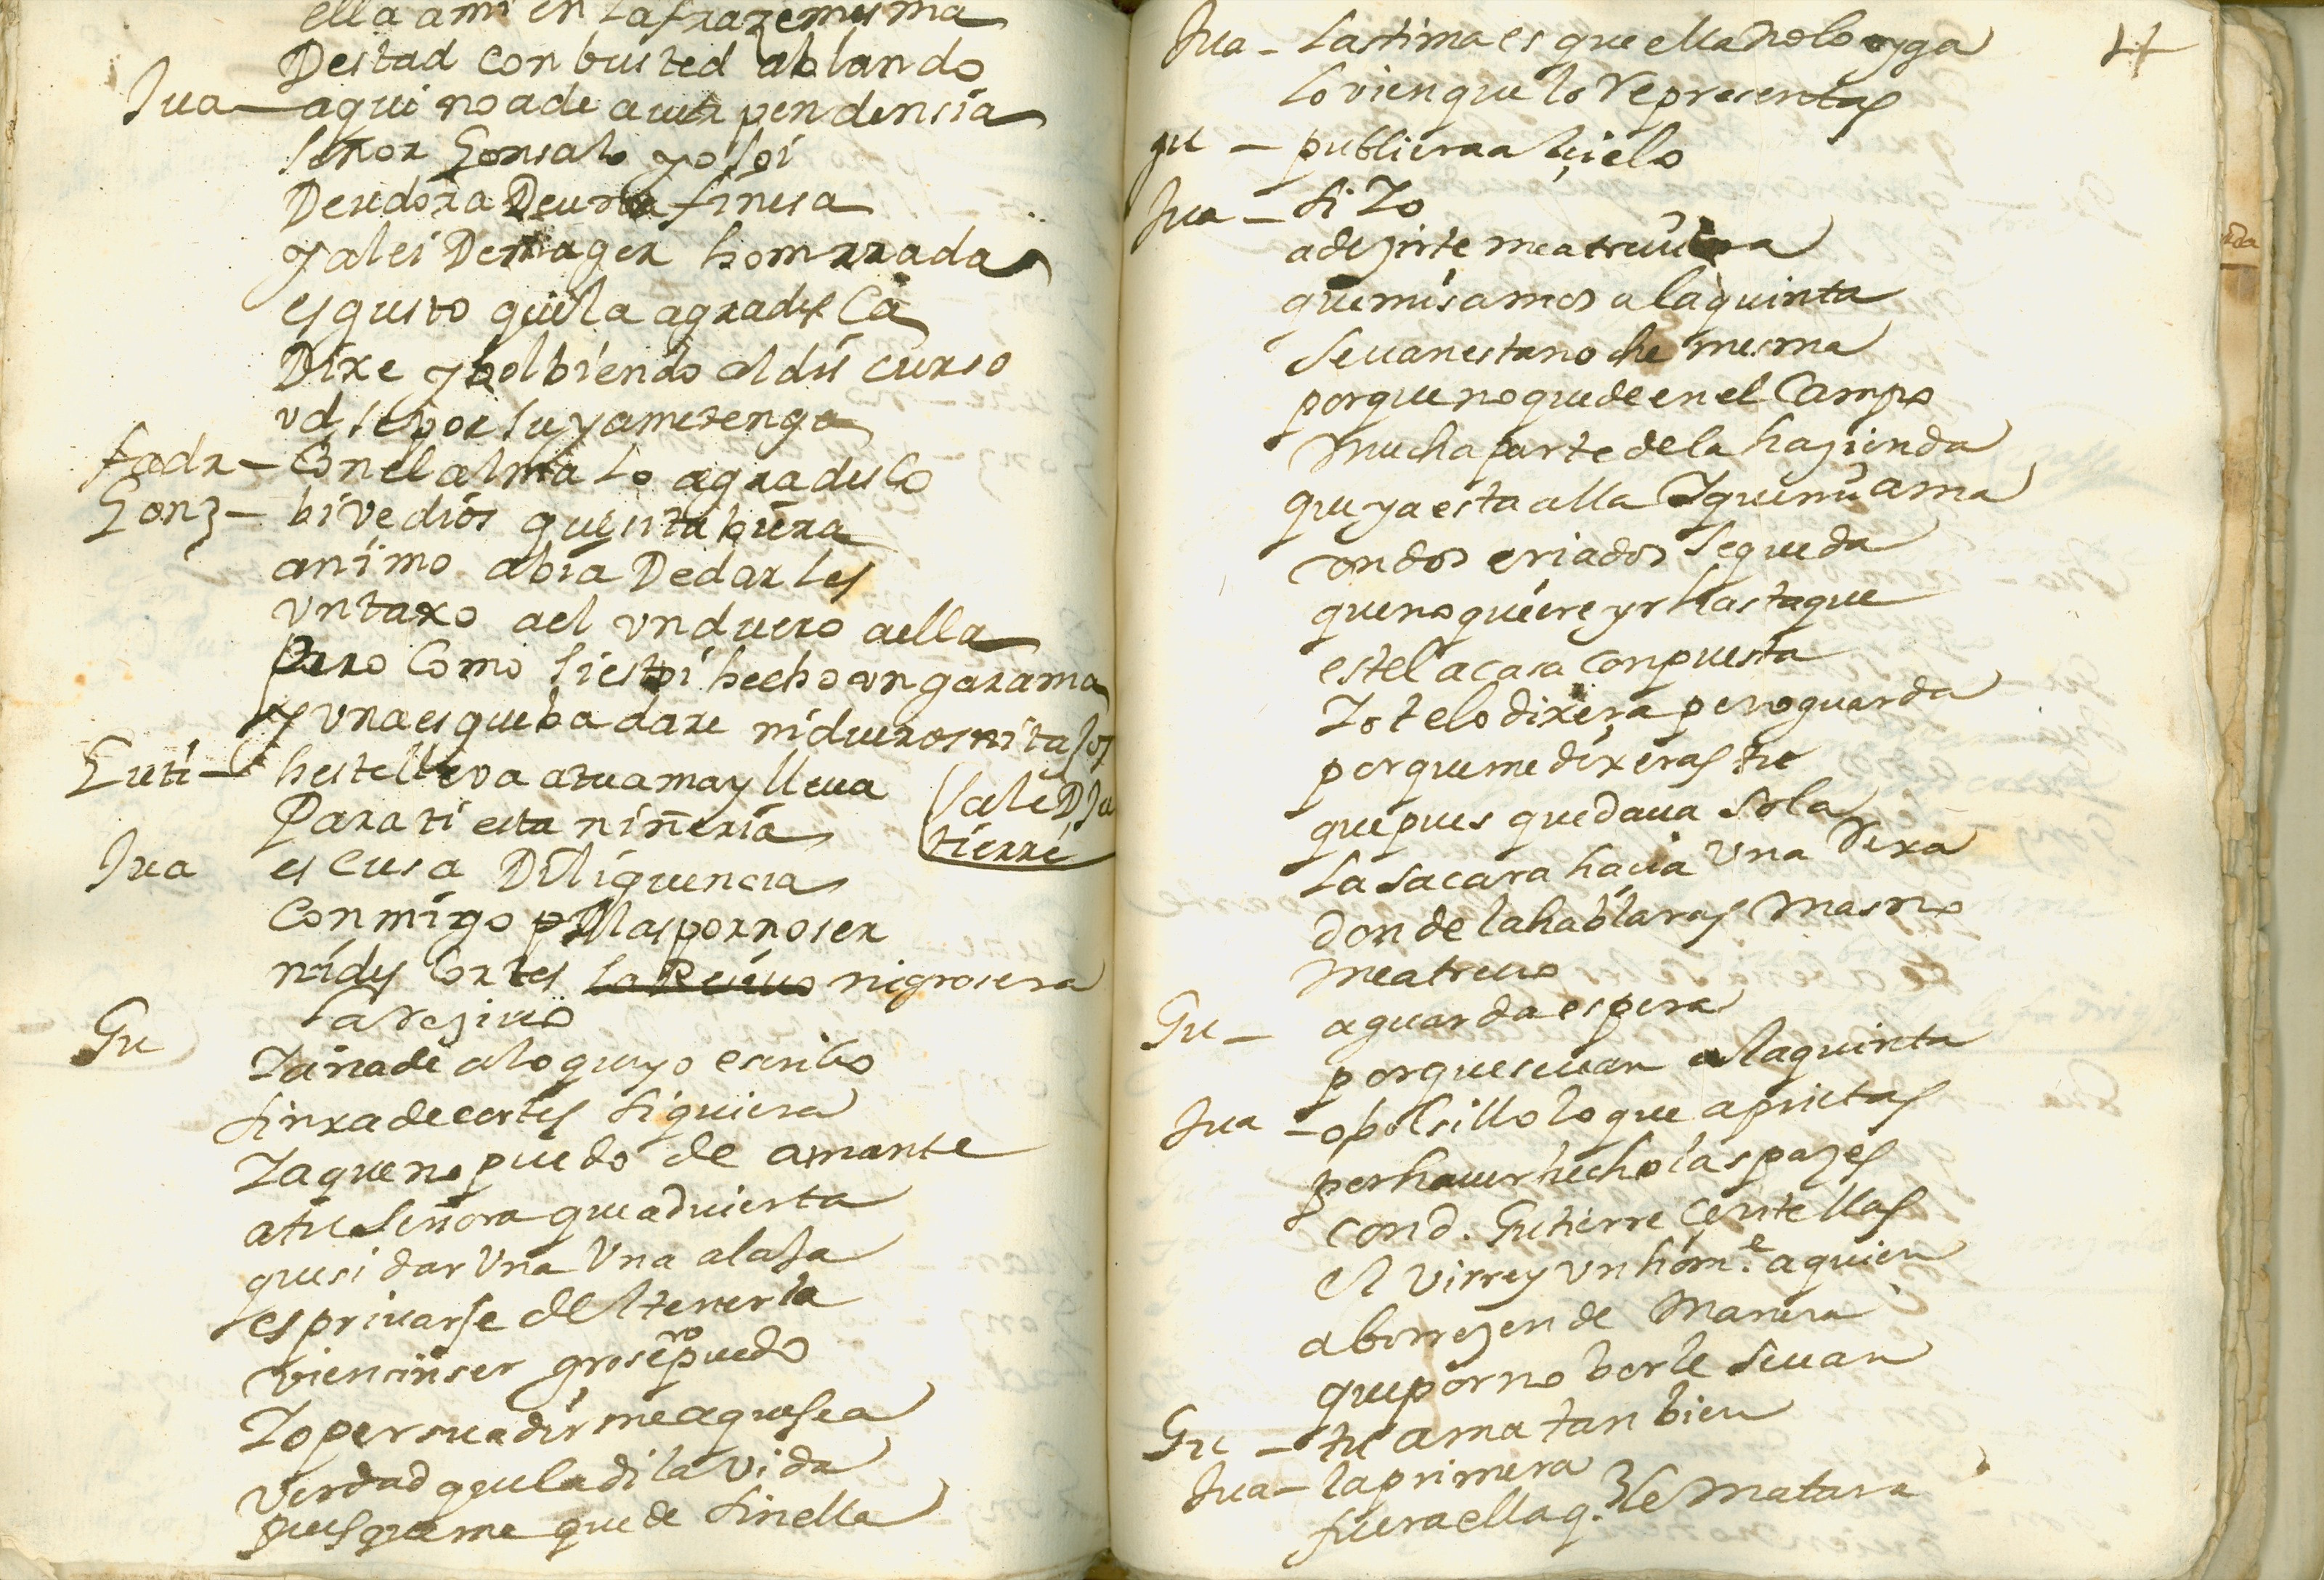 ella a mi en la fraze mesma
Destad con busted ablando
Jua — aqui no a de auer pendensia
señor Gonsalo yo soi
Deudora De una finesa
y a lei De muger homrrada
es gusto que la agradesca
Dixe y bolbiendo al discurso
vd se por suya me tenga
fadr — Con el alma lo agradesco
Gonz — bive dios que esta buera
animo abia De darles
vn taxo a el vn duero a ella
Pero como si estoi hecho un garama
y una es que ba dare ni dueros ni tasos
Guti — heste lleva a tu ama y lleua
Para ti esta niñeria
sale D Gu
tierre
Jua escusa Diliguencia
Conmigo mas por no ser
ni des Cortes lo Reciuo ni grosera
la reziuo
Gu Y añade a lo que yo escribo
sinrra de cortes siquiera
Ya que no puedo de amante
a tu señora que aduierta
que si dar Vna Vna alaja
es priuarse del tenerla
vien sin ser grosero puedo
Yo persuadirme a que sea
verdad que la di la vida
pues que me quede sin ella
Jua — Lastima es que ella no lo oyga
lo vien que lo Representas
gu — publiera a el çielo
Jua — si Yo
a dezirte me atreuiera
que mis amos a la quinta
se uan esta noche mesma
porque no quede en el Campo
Mucha parte de la hazienda
que ya esta alla Y que mi ama
con dos criados se queda
que no quiere yr hasta que
este la casa conpuesta
Yo te lo dixera pero guarda
porque me dixeras tu
que pues quedaua sola
la sacara hacia Vna Rexa
donde la hablaras Mas no
me atreuo
Gu — aguarda espera
porque se uan a la quinta
Jua — o bolsillo lo que aprietas
por hauer hecho las pazes
con d. Gutierre Çentellas
el Virrey vn hom.e a quien
aborrezen de Manera
que por no berle se uan
Gu — tu ama tan bien
Jua — la primera
fuera ella q. le Matara